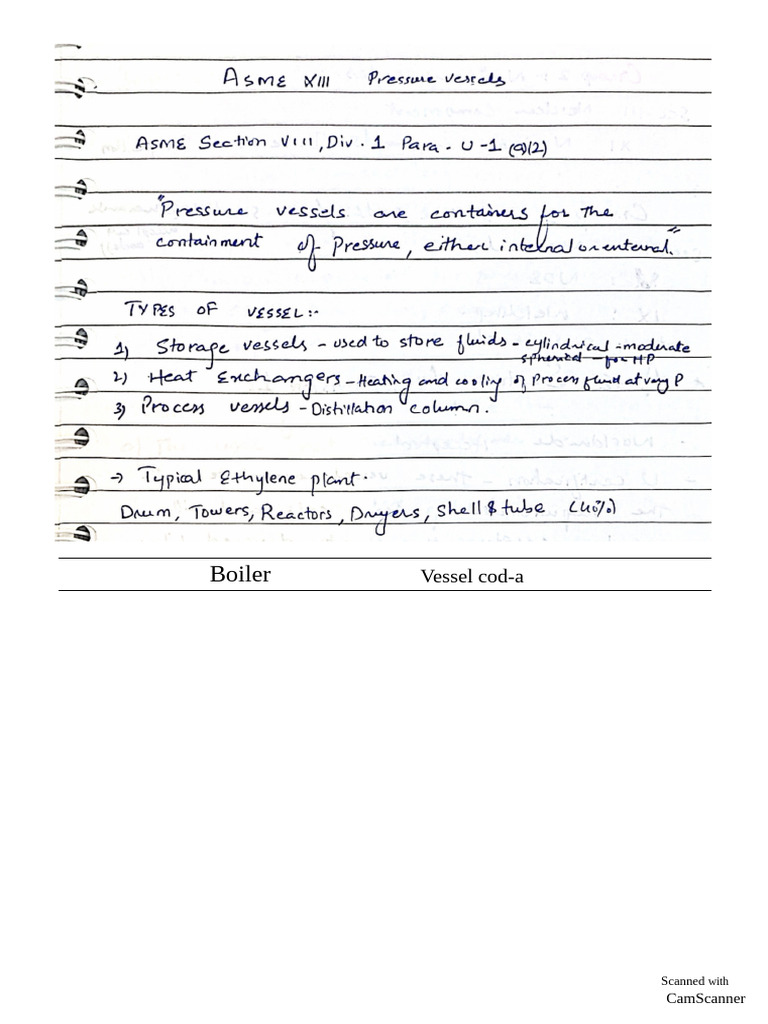 ASME XIII Pressure vessels
ASME Section VIII, Div. 1 Para. U-1 (a)(2)
"Pressure vessels are containers for the
containment of Pressure, either internal or enternal."
TYPES OF VESSEL:-
1) Storage vessels - used to store fluids - cylindrical - moderate
spherical - for HP
2) Heat Exchangers - Heating and cooling of Process fluid at vary P
3) Process vessels - Distillation column.
→ Typical Ethylene plant.
Drum, Towers, Reactors, Dryers, Shell & tube (40%)
Boiler Vessel cod-a
Scanned with
CamScanner